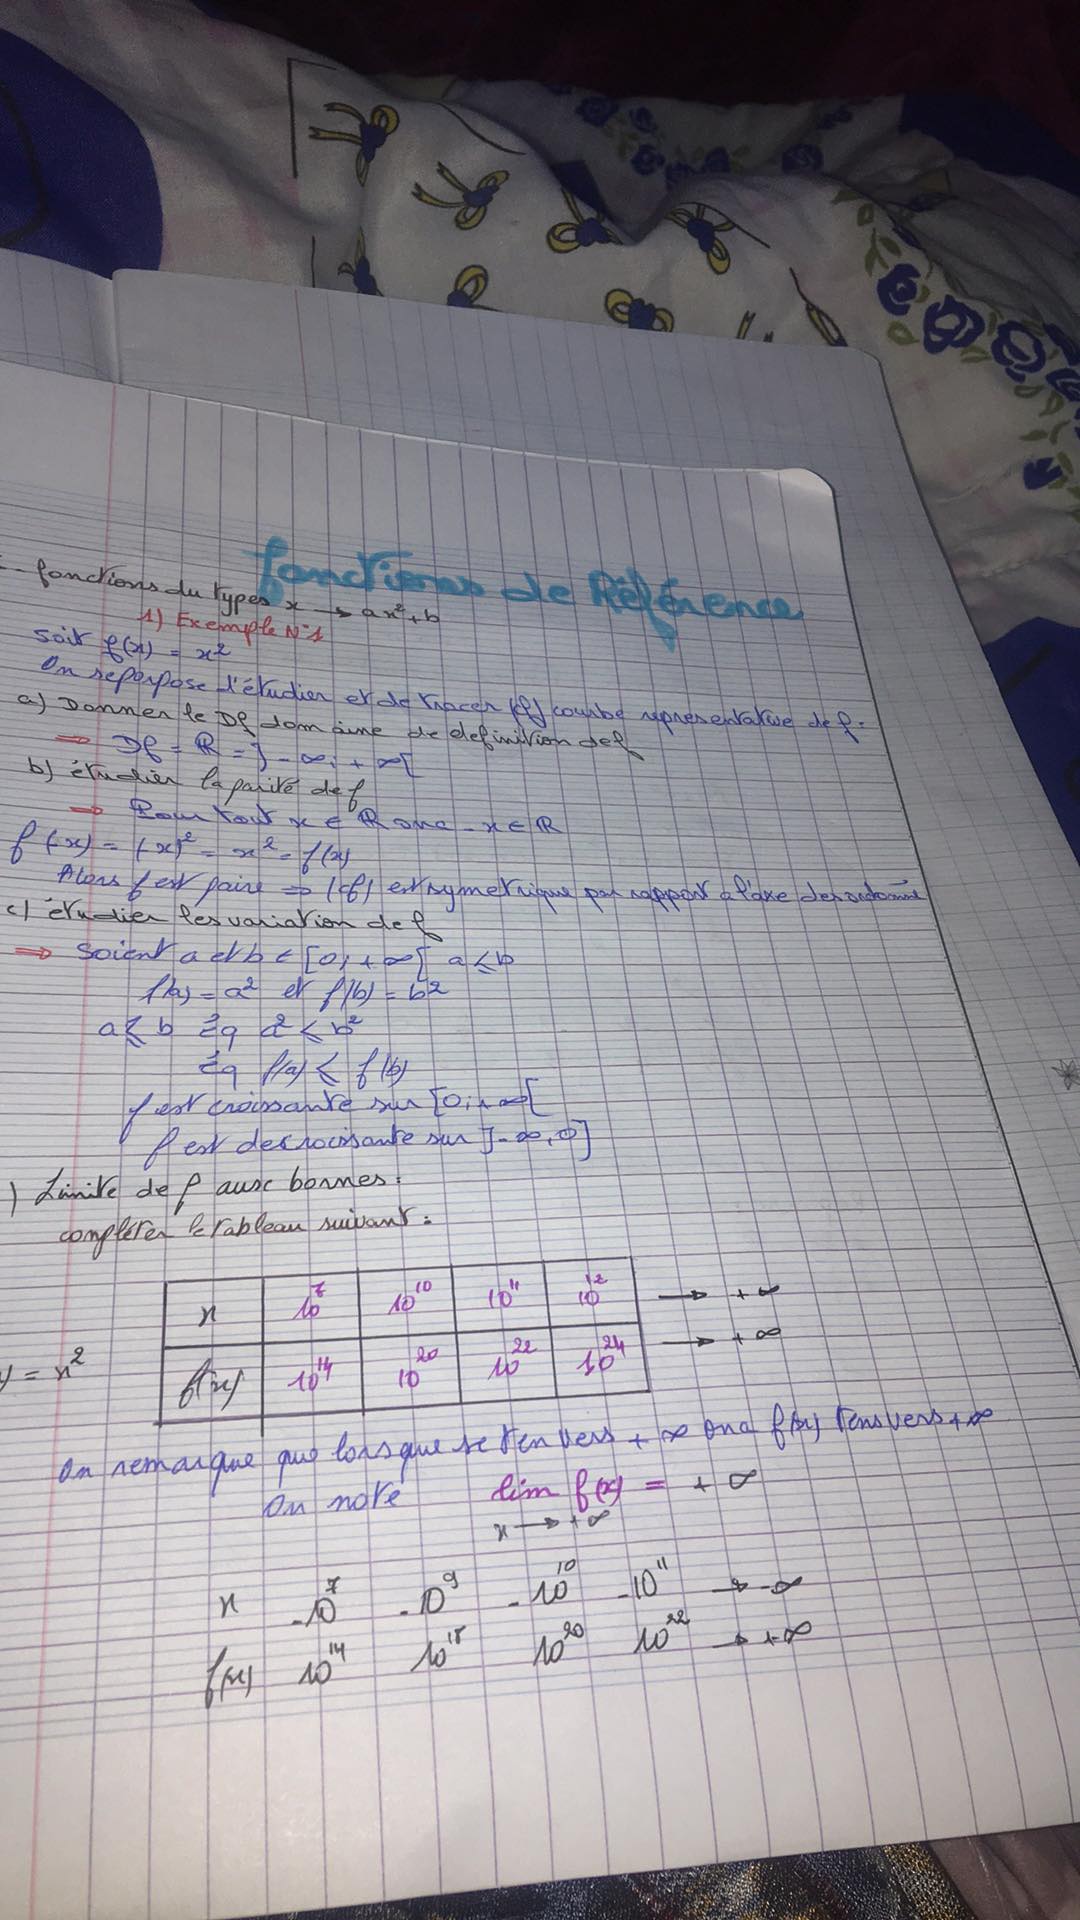 fonctions de Référence
fonctions du types x → ax²+b
1) Exemple N°1
soit f(x) = x²
On seporpose l'étudier et de tracer (Cf) courbe representative de f.
a) Donner le Df domaine de definition def
⇒ Df = ℝ = ]-∞, +∞[
b) étudier la parité de f
⇒ Pour tout x ∈ ℝ ona -x ∈ ℝ
f(-x) = (-x)² = x² = f(x)
Alors f est paire ⇒ (Cf) est symetrique par rapport a l'axe des
c) étudier les variation de f
⇒ soient a et b ∈ [0, +∞[ a ⩽ b
f(a) = a² et f(b) = b²
a ⩽ b éq a² ⩽ b²
éq f(a) ⩽ f(b)
f est croissante sur [0, +∞[
f est decroissante sur ]-∞, 0]
) Limite de f aux bornes:
complèter le tableau suivant:
x 10⁷ 10¹⁰ 10¹¹ 10¹² → +∞
f(x) 10¹⁴ 10²⁰ 10²² 10²⁴ → +∞
) = x²
On remarque que lorsque x ten vers +∞ ona f(x) tens vers +∞
On note lim f(x) = +∞
x → +∞
x -10⁷ -10⁹ -10¹⁰ -10¹¹ → -∞
f(x) 10¹⁴ 10¹⁸ 10²⁰ 10²² → +∞